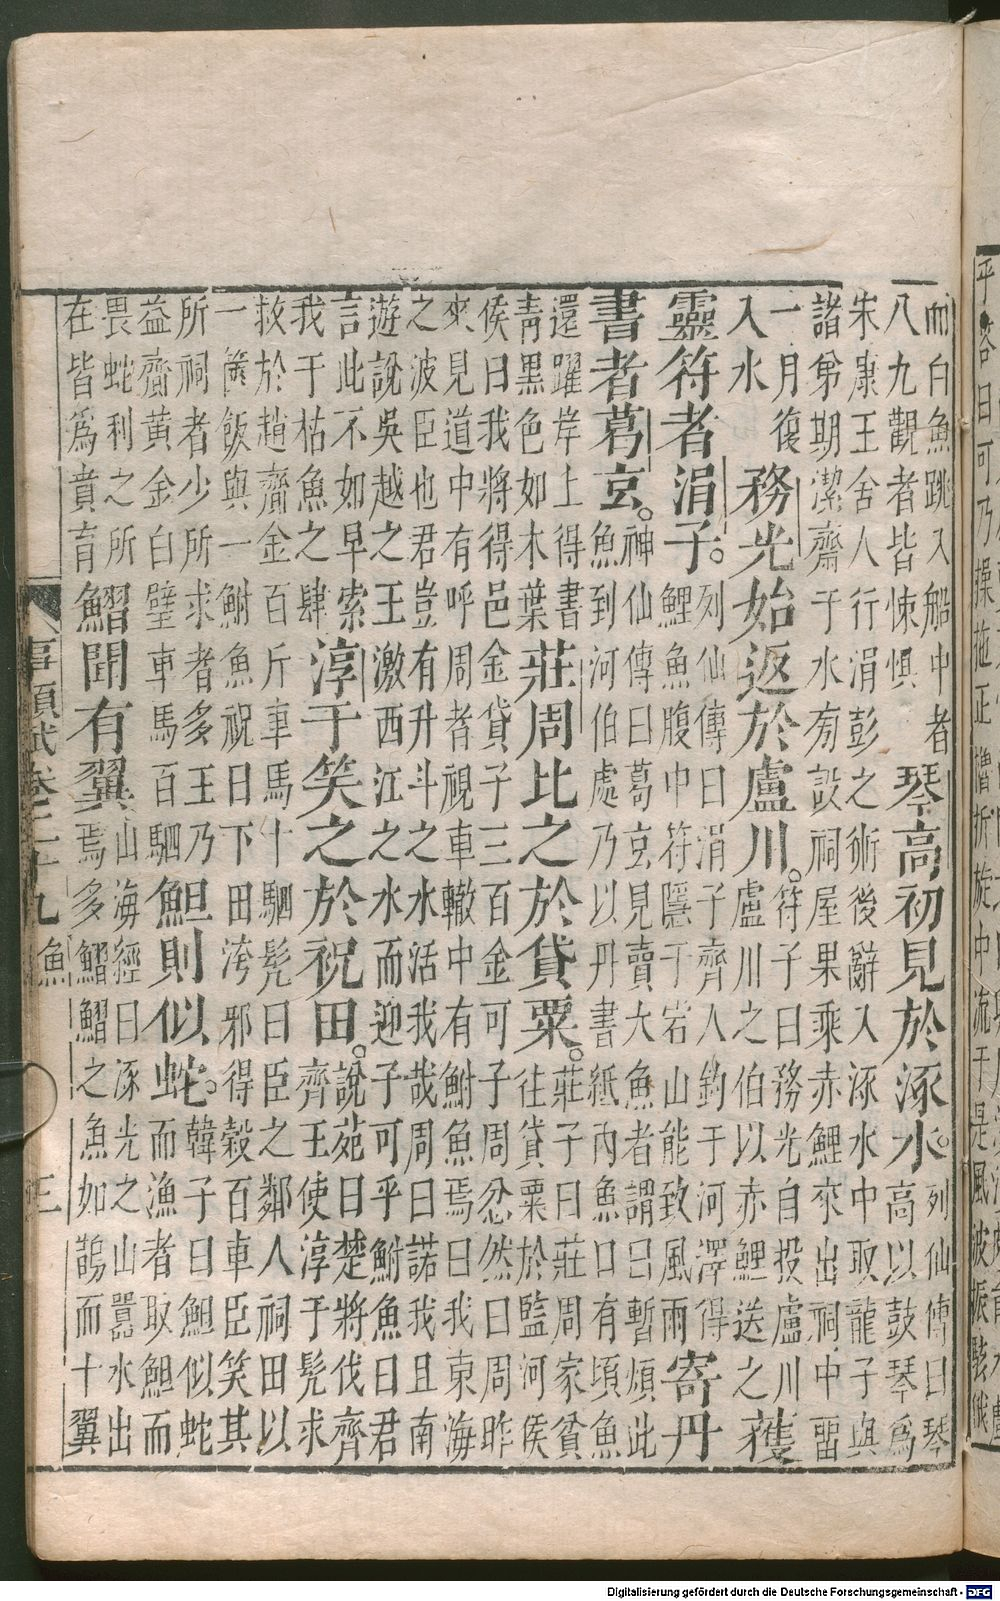 乎答曰可乃操拖正櫓折旋中流于是風波振駭俄
而白魚跳入船中者
八九觀者皆悚懼
琴高初見於涿水。
列仙傳曰琴
高以鼓琴為
朱康王舍人行涓彭之術後辭入涿水中取龍子與
諸弟期潔齋于水旁設祠屋果乘赤鯉來出祠中留
一月復
入水
務光始返於盧川。
符子曰務光自投盧川
盧川之伯以赤鯉送之
獲
靈符者涓子。
列仙傳曰涓子齊人釣于河澤得
鯉魚腹中符隱于宕山能致風雨
寄丹
書者葛玄。
神仙傳曰葛玄見賣大魚者謂曰暫煩此
魚到河伯處乃以丹書紙內魚口有頃魚
還躍岸上得書
青黑色如木葉
莊周比之於貸粟。
莊子曰莊周家貧
往貸粟於監河侯
侯曰我將得邑金貸子三百金可子周忿然曰周昨
來見道中有呼周者視車轍中有鮒魚焉曰我東海
之波臣也君豈有升斗之水活我哉周曰諾我且南
遊說吳越之王激西江之水而迎子可乎鮒魚曰君
言此不如早索
我于枯魚之肆
淳于笑之於祝田。
說苑曰楚將伐齊
齊王使淳于髡求
救於趙齎金百斤車馬十駟髡曰臣之鄰人祠田以
一奩飯與一鮒魚祝曰下田洿邪得穀百車臣笑其
所祠者少所求者多王乃
益齎黃金白璧車馬百駟
䱇則似蛇。
韓子曰䱇似蛇
而漁者取䱇而
畏蛇利之所
在皆為賁育
鰼聞有翼
山海經曰涿光之山囂水出
焉多鰼鰼之魚如鵲而十翼
事類賦卷二十九 魚 三
Digitalisierung gefördert durch die Deutsche Forschungsgemeinschaft - DFG